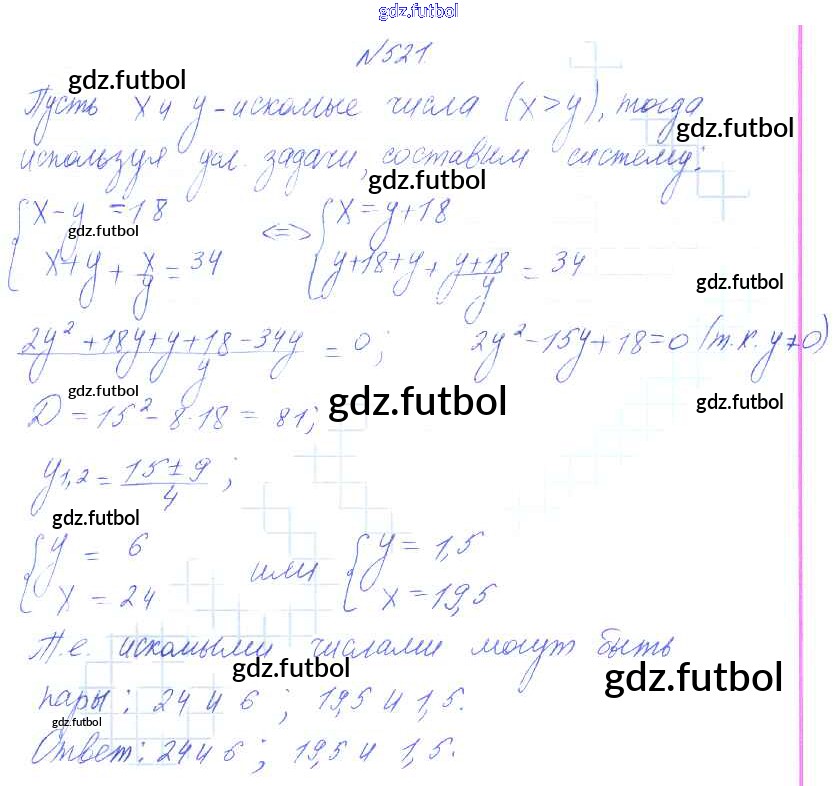 gdz.futbol
N521
gdz.futbol
Пусть x и y - искомые числа (x>y), тогда
gdz.futbol
используя усл. задачи, составим систему:
gdz.futbol
{x-y=18 <=> {x=y+18
gdz.futbol
x+y+x/y=34 y+18+y+(y+18)/y=34
gdz.futbol
(2y²+18y+y+18-34y)/y=0; 2y²-15y+18=0 (т.к. y≠0)
gdz.futbol gdz.futbol gdz.futbol
D=15²-8·18=81;
y1,2=(15±9)/4;
gdz.futbol
{y=6 или {y=1,5
x=24 x=19,5
Т.е. искомыми числами могут быть
gdz.futbol gdz.futbol
пары: 24 и 6; 19,5 и 1,5.
gdz.futbol
Ответ: 24 и 6; 19,5 и 1,5.